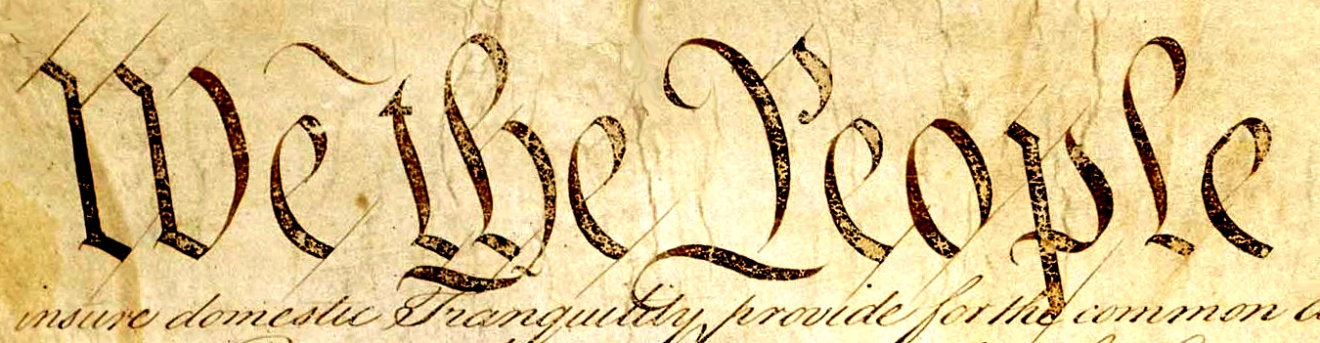 We the People
insure domestic Tranquility, provide for the common